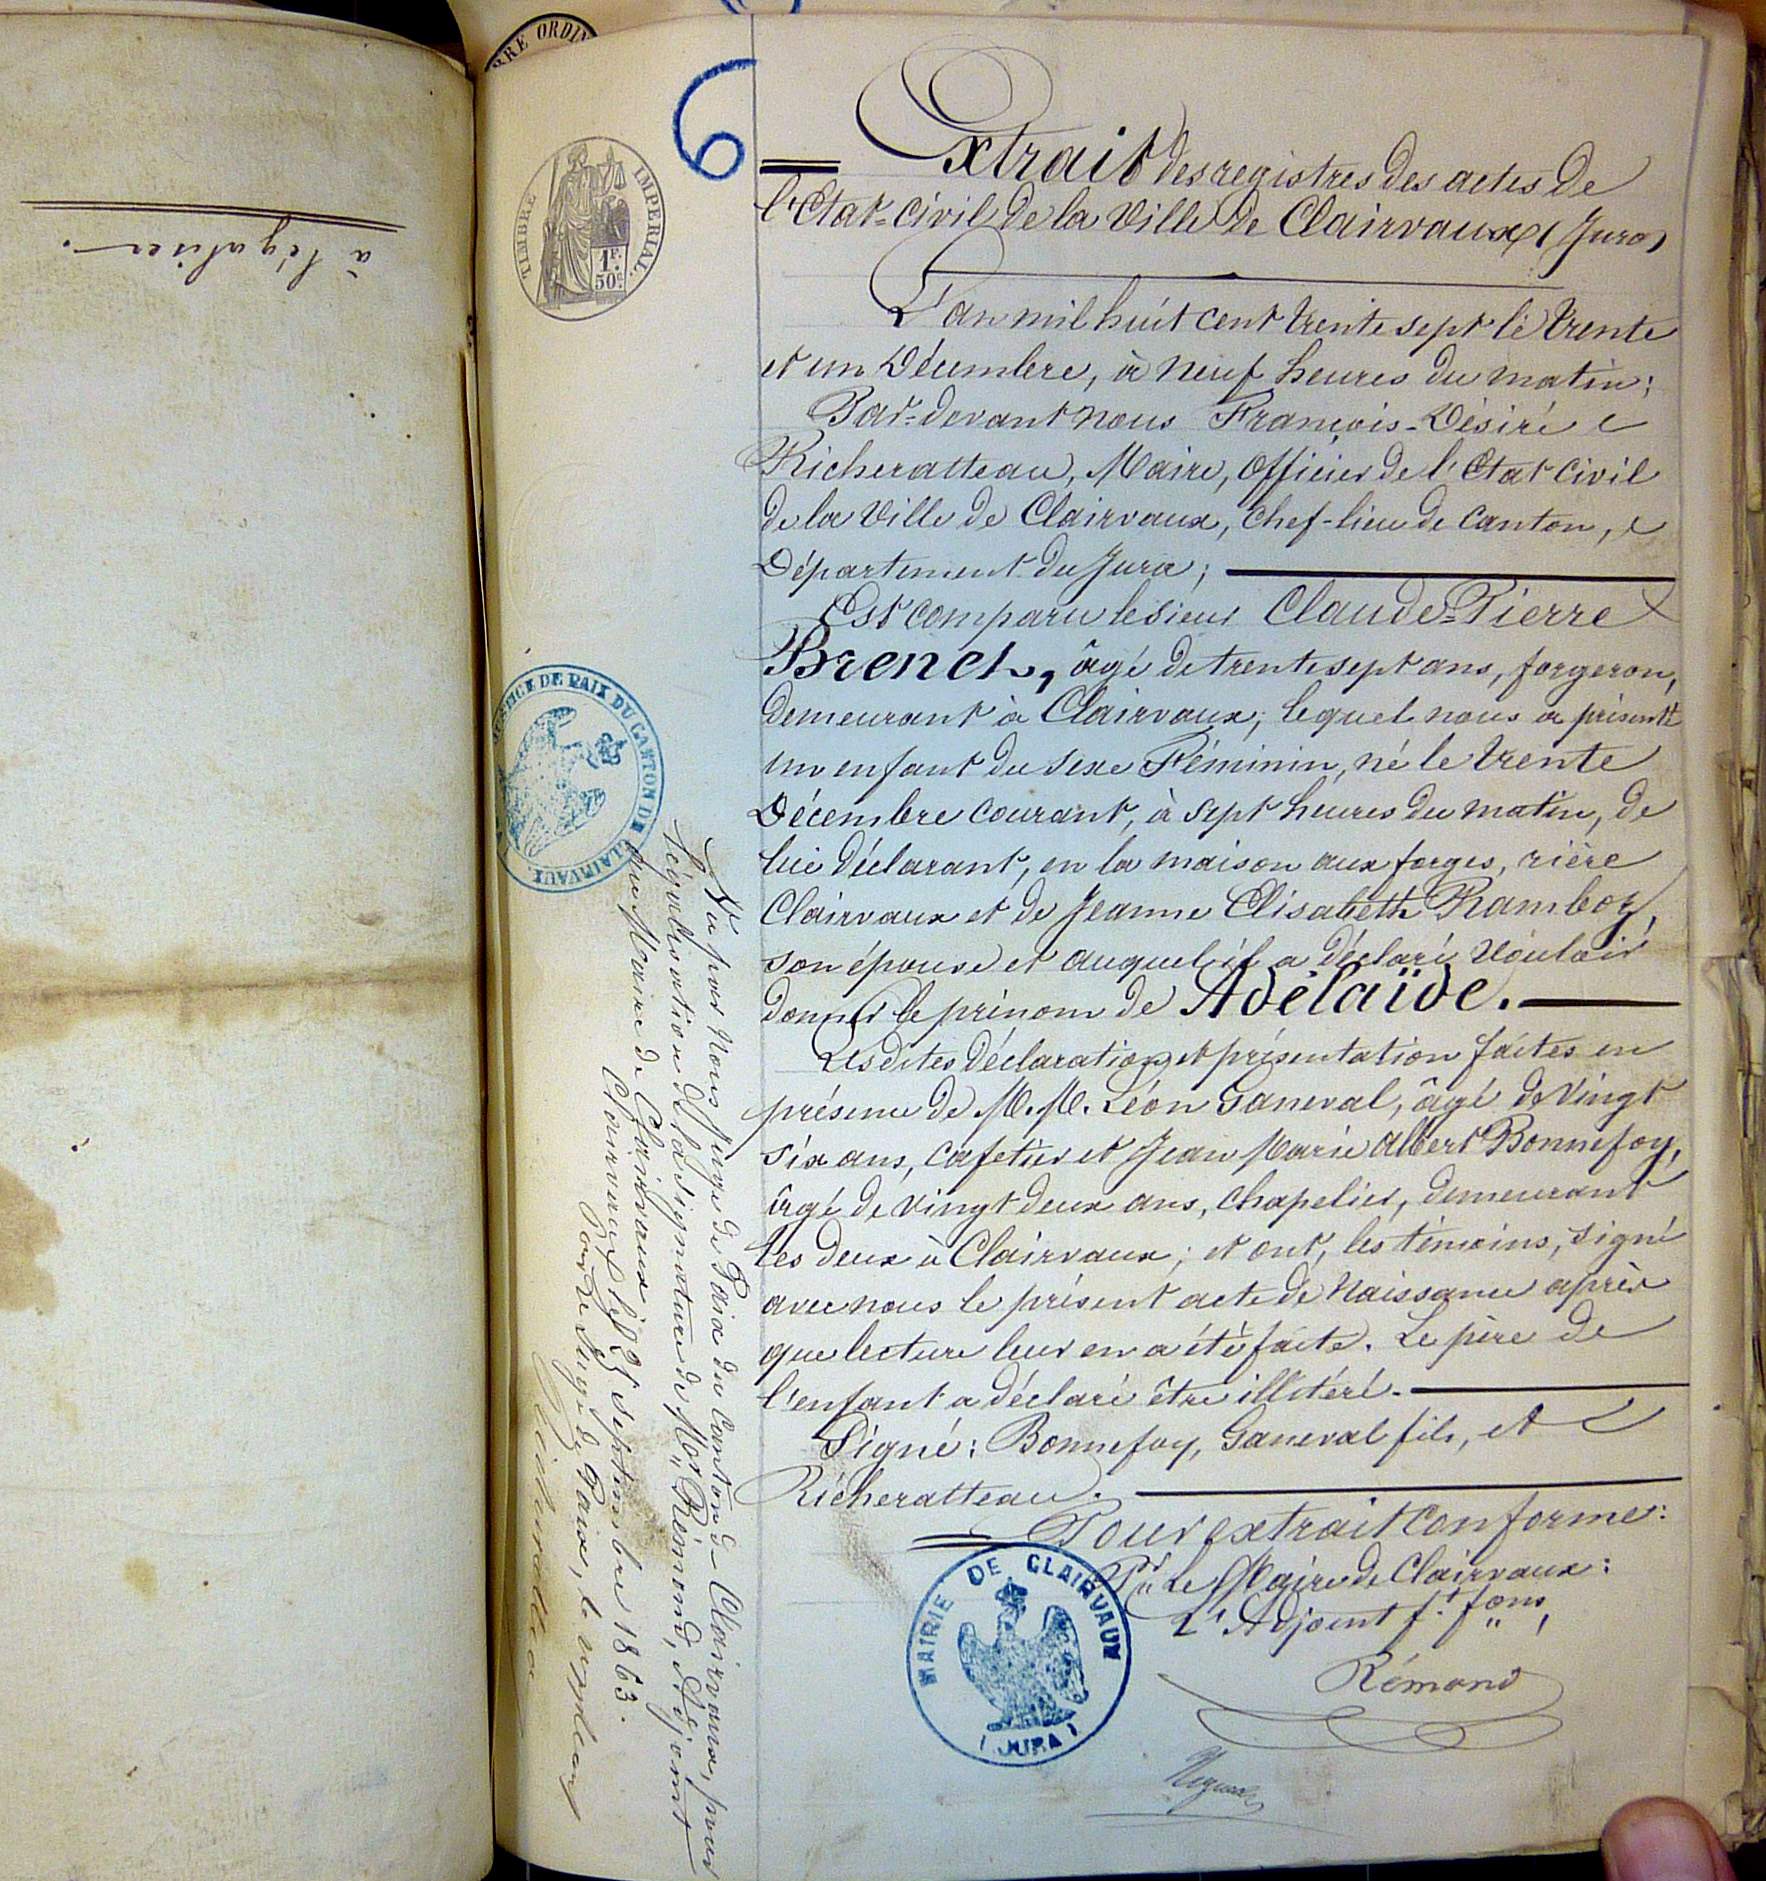 à légaliser.
TIMBRE ORDIN
6
TIMBRE IMPERIAL.
1F.
50c
Extrait des registres des actes de
l'Etat-civil de la Ville de Clairvaux (Jura)
L'an mil huit cent trente sept le trente
et un Décembre, à neuf heures du matin;
Par-devant nous François-Désiré
Richeratteau, Maire, Officier de l'Etat Civil
de la Ville de Clairvaux, chef-lieu de Canton,
Département du Jura;
Est comparu le sieur Claude-Pierre
Brenet, âgé de trente sept ans, forgeron,
demeurant à Clairvaux, lequel nous a présenté
un enfant du sexe Féminin, né le trente
Décembre courant, à sept heures du matin, de
lui déclarant, en la maison aux forges, rière
Clairvaux et de Jeanne Elisabeth Ramboz,
son épouse et auquel il a déclaré vouloir
donner le prénom de Adélaïde.
Lesdites Déclaration et présentation faites en
présence de M.M. Léon Ganeval, âgé de Vingt
six ans, cafetier et Jean Marie Albert Bonnefoy,
âgé de vingt deux ans, chapelier, demeurant
les deux à Clairvaux; et ont, les témoins, signé
avec nous le présent acte de Naissance après
que lecture leur en a été faite. Le père de
l'enfant a déclaré être illitéré.
Signé: Bonnefoy, Ganeval fils, et
Richeratteau.
Pour extrait conforme:
Pr Le Maire de Clairvaux:
L'Adjoint f.t fons,
Rémond
MAIRIE DE CLAIRVAUX
(JURA)
JUSTICE DE PAIX DU CANTON DE CLAIRVAUX
Vu par Nous Juge de Paix du Canton de Clairvaux, pour
légalisation de la signature de Mr Rémond, Adjoint
au Maire de Clairvaux
Clairvaux le 25 septembre 1863.
Pour le Juge de Paix, le suppléant